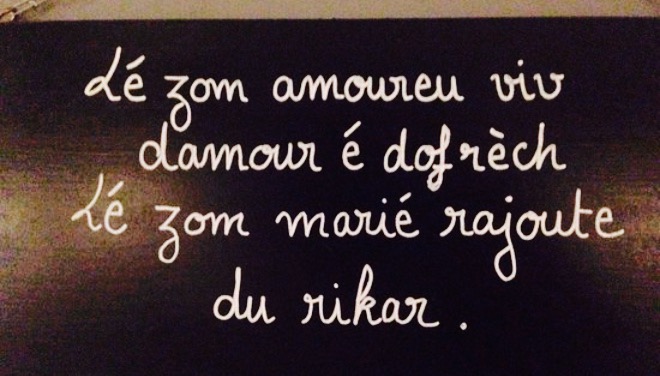 Lé zom amoureu viv
damour é dofrèch
Lé zom marié rajoute
du rikar.